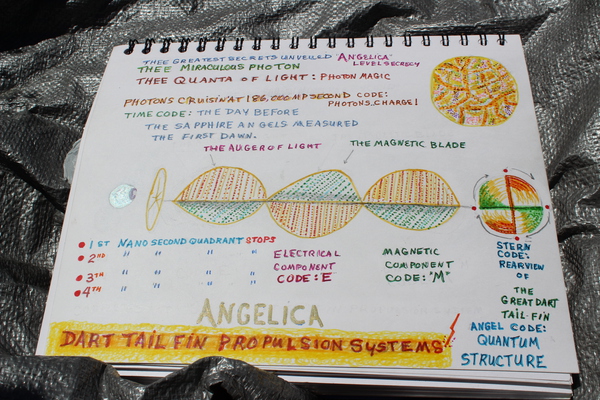 THEE GREATEST SECRETS UNVEILED 'ANGELICA'
LEVEL SECRECY
THEE MIRACULOUS PHOTON
THEE QUANTA OF LIGHT: PHOTON MAGIC
PHOTONS CRUISIN' AT 186,000 MP SECOND CODE:
PHOTONS, CHARGE!
TIME CODE: THE DAY BEFORE
THE SAPPHIRE ANGELS MEASURED
THE FIRST DAWN.
THE AUGER OF LIGHT
THE MAGNETIC BLADE
1ST NANO SECOND QUADRANT STOPS
2ND " " " "
3TH " " " "
4TH " " " "
ELECTRICAL
COMPONENT
CODE: E
MAGNETIC
COMPONENT
CODE: "M"
STERN
CODE:
REARVIEW
OF
THE
GREAT DART
TAIL-FIN
ANGEL CODE:
QUANTUM
STRUCTURE
ANGELICA
DART TAIL FIN PROPULSION SYSTEMS